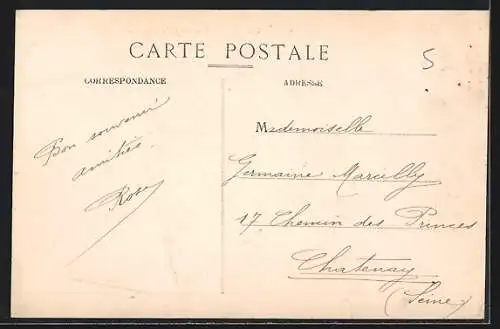 CARTE POSTALE
5
CORRESPONDANCE
ADRESSE
Bon souvenir
amitiés.
Rose
Mademoiselle
Germaine Marcelly
17 Chemin des Princes
Chatenay
(Seine)